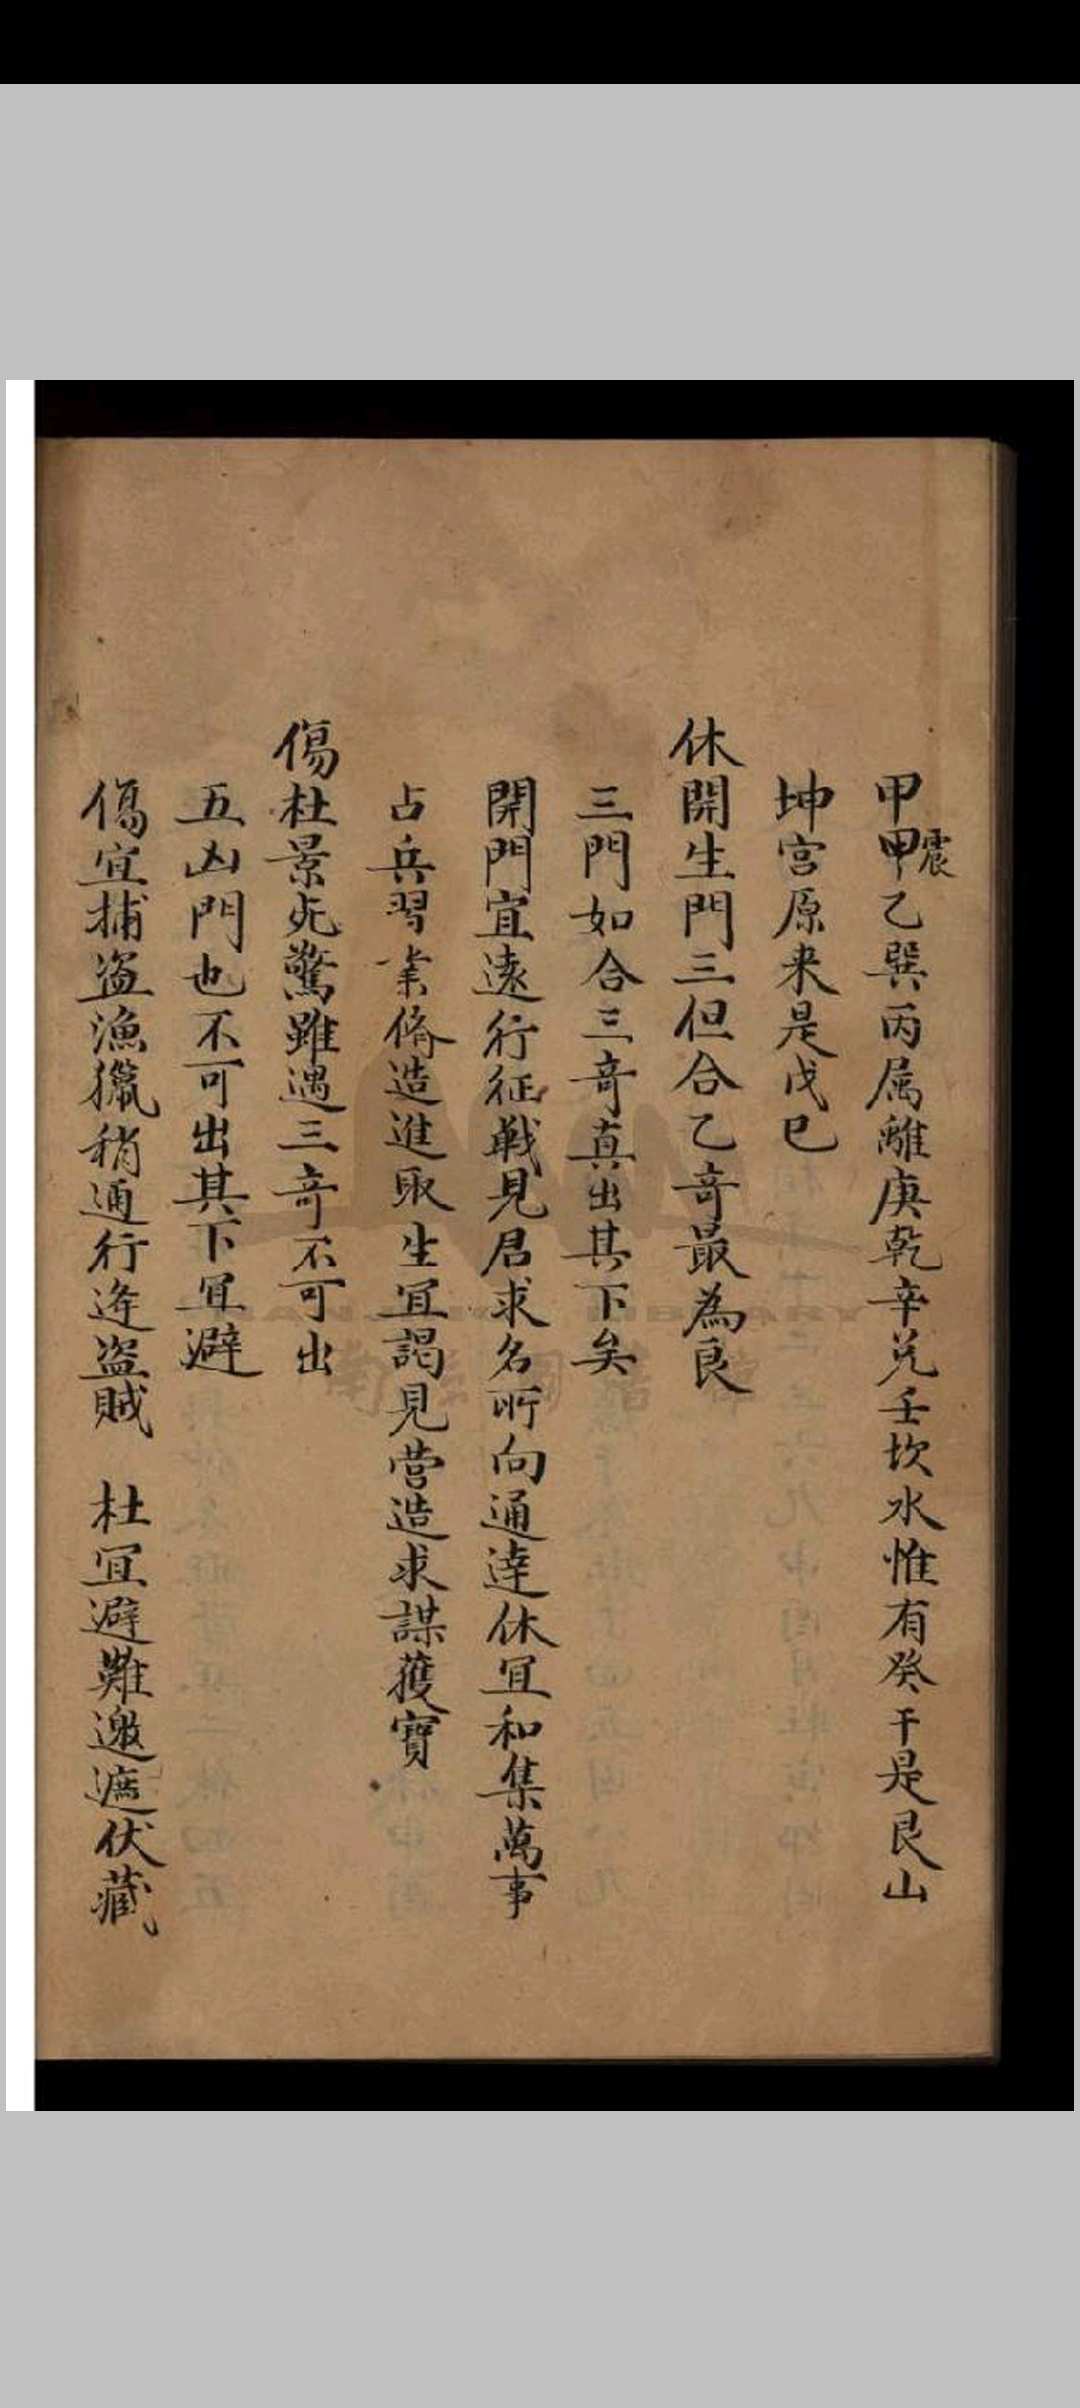 甲甲震乙巽丙属離庚乾辛兑壬坎水惟有癸干是艮山
坤宫原来是戊巳
休開生門三但合乙竒最為良
三門如合三竒真出其下矣
開門宜遠行征戦見君求名所向通達休冝和集萬事
占兵習業脩造進取生冝謁見营造求謀獲寳
傷杜景死驚雖遇三竒不可出
五凶門也不可出其下冝避
傷宜捕盗漁獵稍通行逄盗賊 杜冝避難邀遮伏藏